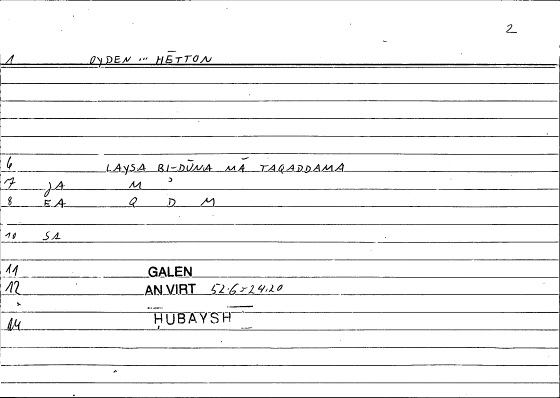 2
1 OYDEN ... HĒTTON
6 LAYSA BI-DŪNA MĀ TAQADDAMA
7 JA M ʾ
8 EA Q D M
10 SA
11 GALEN
12 AN.VIRT 52.6=24.20
14 ḤUBAYSH